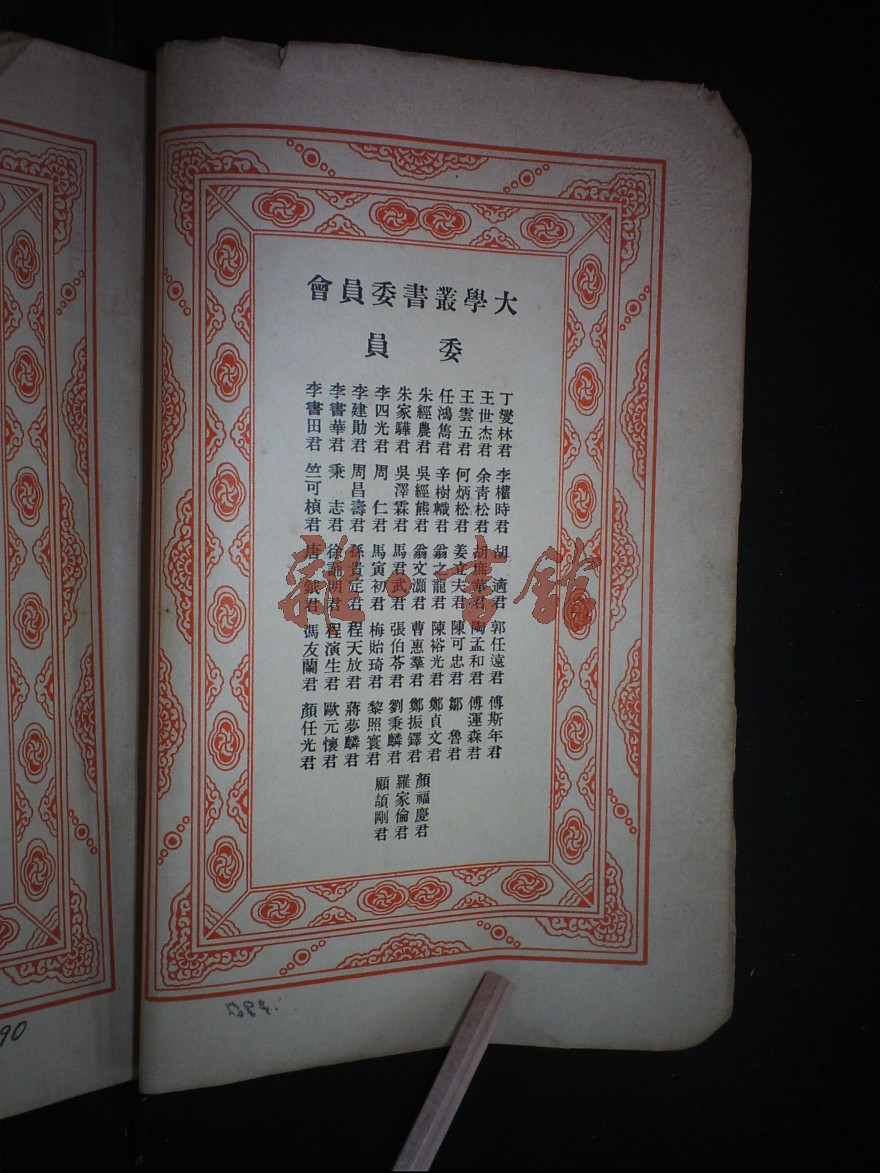 大學叢書委員會
委員
丁燮林君
王世杰君
王雲五君
任鴻雋君
朱經農君
朱家驊君
李四光君
李建勛君
李書華君
李書田君
李權時君
余青松君
何炳松君
辛樹幟君
吳經熊君
吳澤霖君
周仁君
周昌壽君
秉志君
竺可楨君
胡適君
胡庶華君
姜立夫君
翁之龍君
翁文灝君
馬君武君
馬寅初君
孫貴定君
徐誦明君
唐鉞君
郭任遠君
陶孟和君
陳可忠君
陳裕光君
曹惠羣君
張伯苓君
梅貽琦君
程天放君
程演生君
馮友蘭君
傅斯年君
傅運森君
鄒魯君
鄭貞文君
鄭振鐸君
劉秉麟君
黎照寰君
蔣夢麟君
歐元懷君
顏任光君
顏福慶君
羅家倫君
顧頡剛君
雜·書館
90